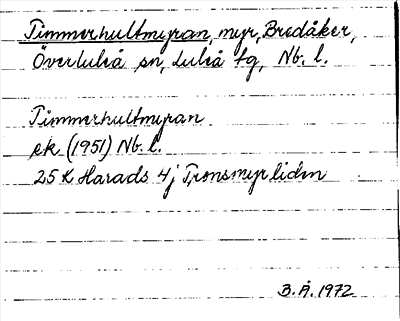 Timmerhultmyran, myr, Bredåker,
Överluleå sn, Luleå tg, Nb. l.
Timmerhultmyran
ek (1951) Nb. l.
25 K Harads 4j Tronsmyrliden
B.Å. 1972